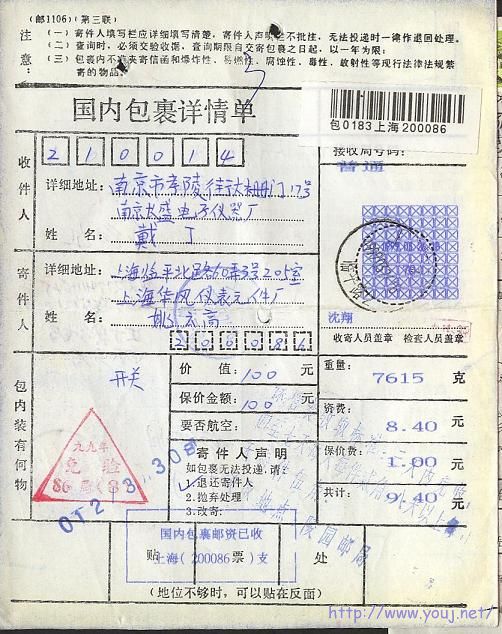 (邮1106)(第三联)
注意:
(一)寄件人填写栏应详细填写清楚,寄件人声明栏不批注,无法投递时一律作退回处理。
(二)查询时,必须交验收据,查询期限自交寄包裹之日起,以一年为限;
(三)包裹内不准夹寄信函和爆炸性、易燃性、腐蚀性、毒性、放射性等现行法律法规禁
寄的物品。
国内包裹详情单
包0183上海200086
接收局号码:
普通
收件人
210014
详细地址:南京市孝陵 17号
南京大盛电子仪器厂
姓名:戴丁
寄件人
详细地址:上海临平北路 弄3号205室
上海华风仪表元件厂
姓名: 高
200086
沈翔
收寄人员盖章 检查人员盖章
包内装有何物
开关
九九年
免 验
86
价值:100元
保价金额:100元
要否航空:
寄件人声明
如包裹无法投递,请:
1.退还寄件人
2.抛弃处理
3.改寄:
重量:7615克
资费:8.40元
保价费:1.00元
共计:9.40元
地点陵园邮局
国内包裹邮资已收
上海(200086)支
贴 票 处
(地位不够时,可以贴在反面)
http://www.youj.net/